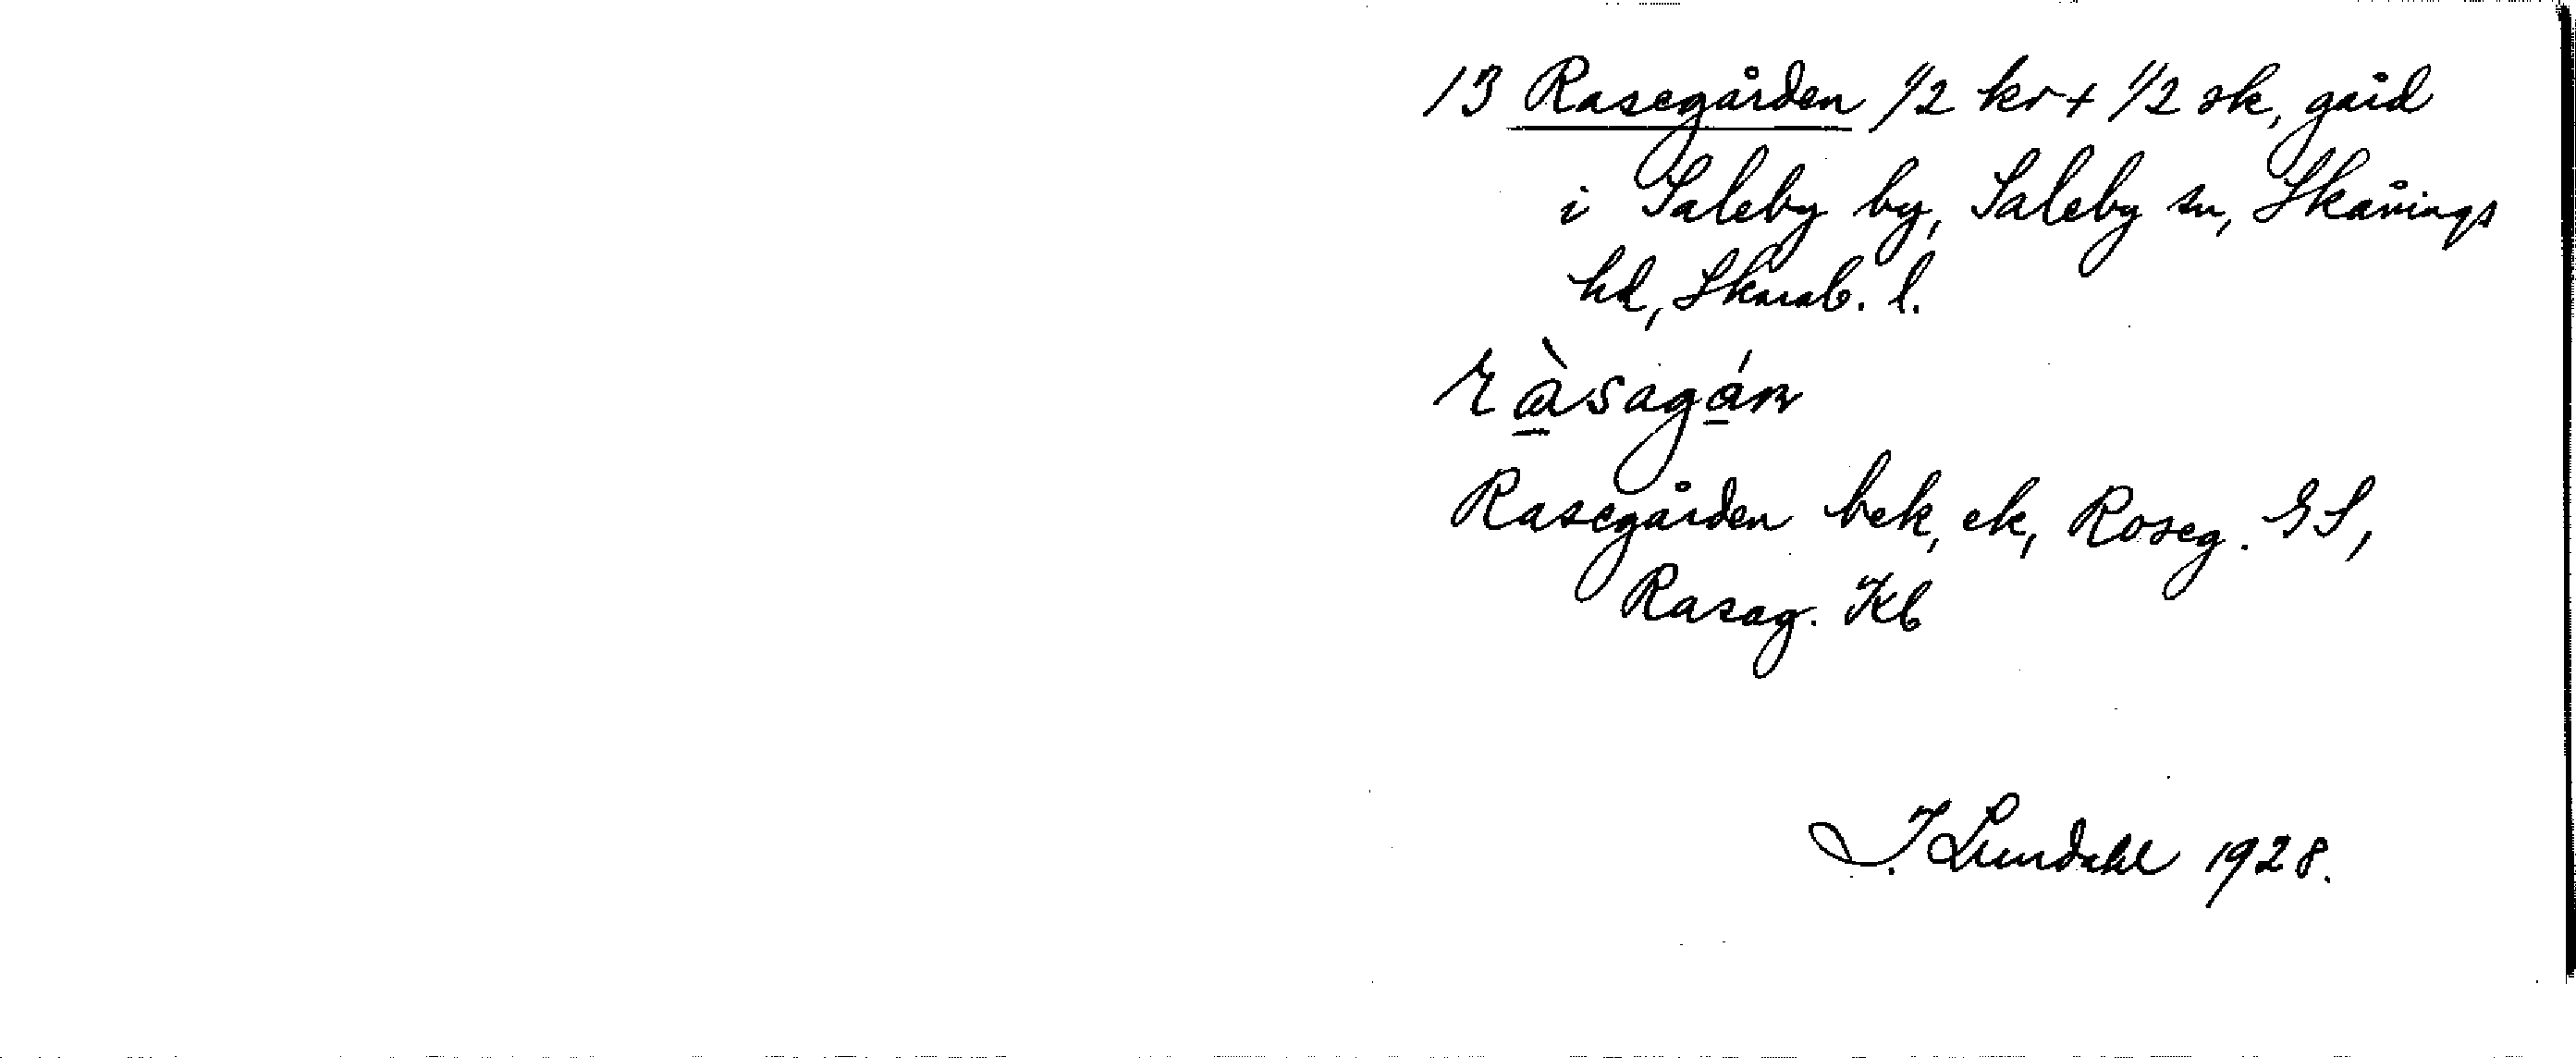 13 Rasegården 1/2 kr + 1/2 sk, gård
i Saleby by, Saleby sn, Skånings
hd, Skarab. l.
ràsagán
Rasegården bek, ek, Roseg. GS,
Rasag. Kb
I. Lundahl 1928.